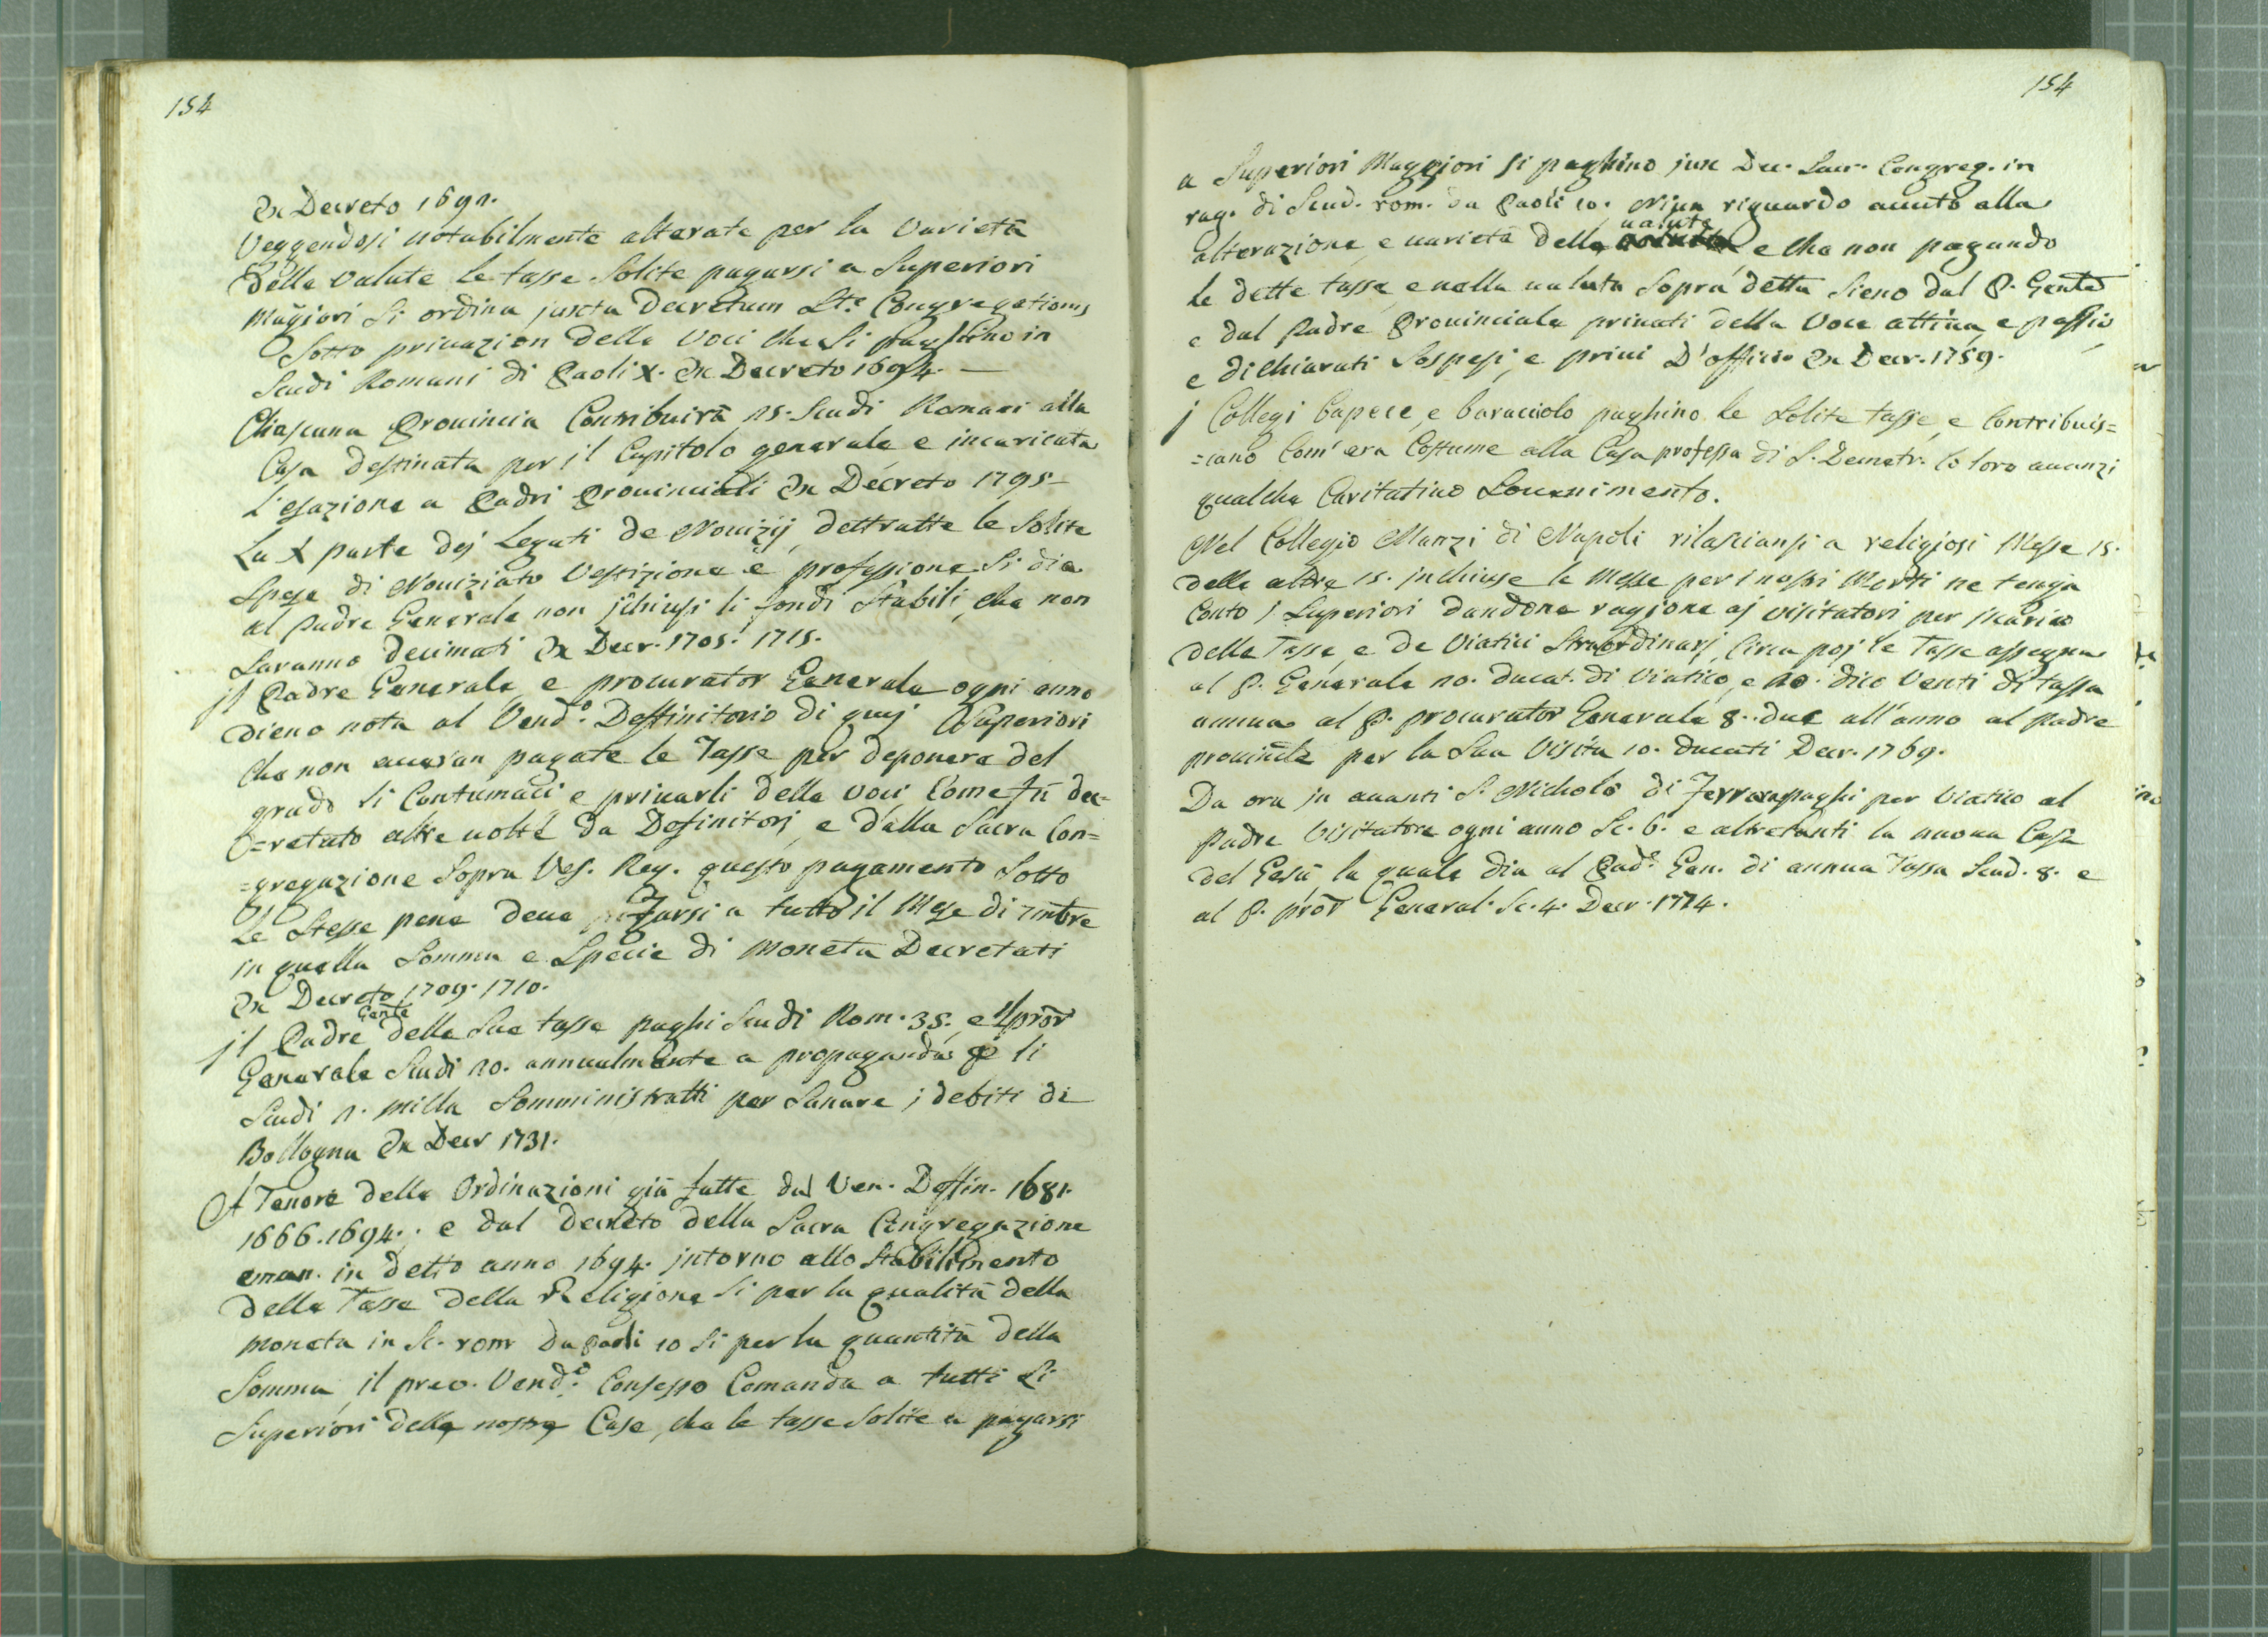 154
Ex Decreto 1691.
Veggendosi notabilmente alterate per la varietà
delle valute le tasse solite pagarsi a Superiori
Mag̃iori si ordina juxta Decretum S.te Congregationis
sotto privazion delle voci che si paghino in
Scudi Romani di Paoli X. Ex Decreto 1694.—
Chiascuna Provincia Contribuirà 25. Scudi Romani alla
Casa destinata per il Capitolo generale e incaricata
l'esazione a Padri Provinciali Ex Decreto 1795—
La X parte dej Legati de Novizij, dettratte le Solite
Spese di Noviziato Vestizione e professione si dia
al Padre Generale non ĩchiusi li fondi Stabili, che non
saranno decimati Ex Decr. 1705. 1715.
jl Padre Generale, e procurator Generale ogni anno
dieno nota al Vend.o Deffinitorio di quej Superiori
che non avaran pagate le Tasse per deponere del
grado li Contumaci e privarli della voci Come fù dec=
=retato altre volte da Definitorj, e dalla Sacra Con=
=gregazione Sopra Ves. Reg. questo pagamento Sotto
le Stesse pene deve farsi a tutto il Mese di 7mbre
in quella Somma e Specie di moneta Decretati
Ex Decreto 1709. 1710.
jl Padre Genle delle Sue tasse paghi Scudi Rom. 35. e il pror
Generale Scudi 20. annualmente a propaganda p li
Scudi 2. milla Somministratti per Sanare j debiti di
Bollogna Ex Decr 1731.
A Tenore delle Ordinazioni già fatte dal Ven. Deffin. 1681.
1666. 1694. e dal decreto della Sacra Congregazione
eman. in detto anno 1694. jntorno allo Stabilimento
delle Tasse della Religione si per la qualità della
moneta in Sc. rom da Paoli 10 si per la quantità della
Somma, il prev. Vend.o Consesso Comanda a tutti Li
Superiori delle nostre Case, che le tasse solite a pagarsi
154
a Superiori Maggiori si paghino jux Dec. Sacr. Congreg. in
rag. di Scud. rom. da Paoli 10. Niun riguardo avuto alla
alterazione, e varietà delle valute e che non pagando
le dette tasse, e nella valuta sopra detta sieno dal P. Genle
e dal Padre Provinciale privati della Voce attiva, e passiv
e dichiarati Sospesi, e privi D'officio Ex Decr. 1759.
j Collegi Capece, e Caracciolo paghino le solite tasse, e Contribuis=
=cano Com'era Costume alla Casa professa di S. Demetr. co loro avanzi
qualche Caritativo Sovenimento.
Nel Collegio Manzi di Napoli rilasciansi a religiosi Messe 15.
delle altre 15. jnchiuse le Messe per i nostri Morti ne tengha
Conto j Superiori dandone ragione aj visitatori per scarico
delle Tasse, e de Viatici Straordinarj, Circa poj le Tasse assegna
al P. Generale 20. ducat. di Viatico, e 20. dico Venti di tassa
annua al P. procurator Generale 8. due all'anno al Padre
provinle per la Sua Visita 10. ducati Decr. 1769.
Da ora jn avanti S. Nicholò di Ferrara paghi per Viatico al
Padre Visitatore ogni anno Sc. 6. e altretanti la nuova Casa
del Gesù la quale dia al Pad.e Gen. di annua Tassa Scud. 8. e
al P. pror General. Sc. 4. Decr. 1774.